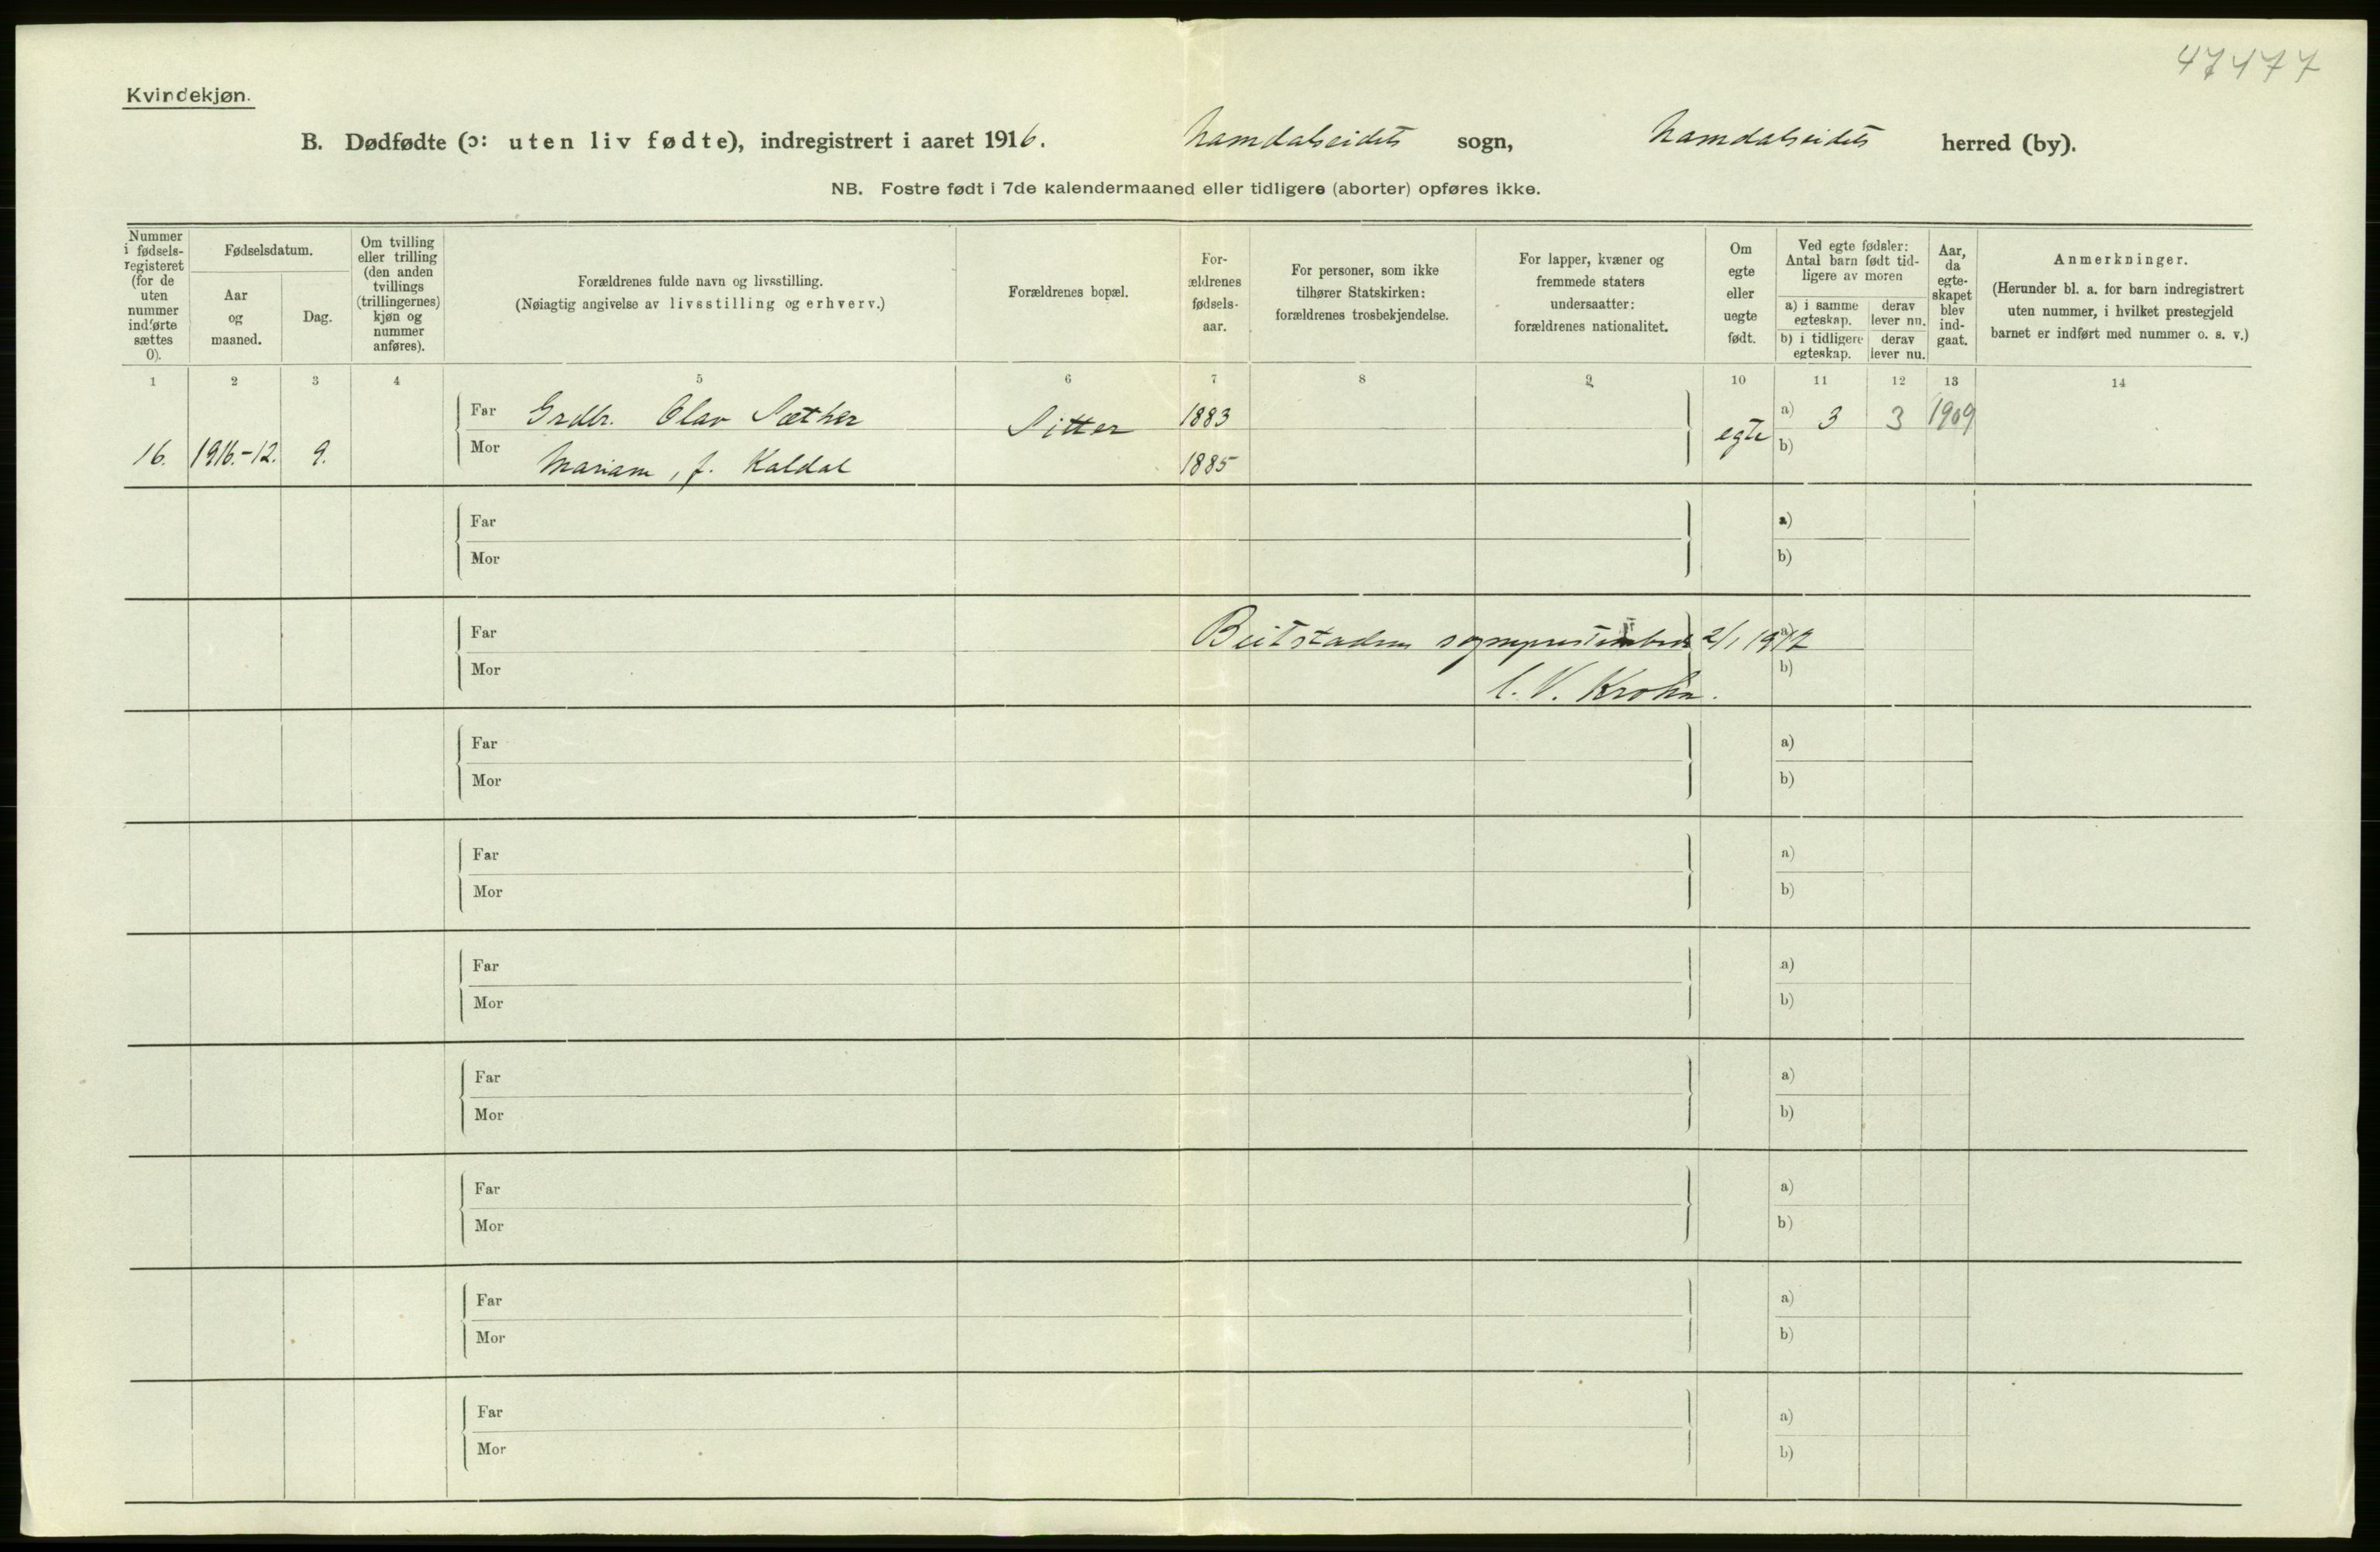 47477
Kvindekjøn.
B. Dødfødte (ɔ: uten liv fødte), indregistrert i aaret 1916. Namdalseidets sogn, Namdalseidets herred (by).
NB. Fostre født i 7de kalendermaaned eller tidligere (aborter) opføres ikke.
Nummer i fødsels-registeret (for de uten nummer indførte sættes 0).
Fødselsdatum.
Aar og maaned.
Dag.
Om tvilling eller trilling (den anden tvillings (trillingernes) kjøn og nummer anføres).
Forældrenes fulde navn og livsstilling.
(Nøiagtig angivelse av livsstilling og erhverv.)
Forældrenes bopæl.
For-ældrenes fødsels-aar.
For personer, som ikke tilhører Statskirken: forældrenes trosbekjendelse.
For lapper, kvæner og fremmede staters undersaatter: forældrenes nationalitet.
Om egte eller uegte født.
Ved egte fødsler: Antal barn født tid-ligere av moren
a) i samme egteskap.
derav lever nu.
b) i tidligere egteskap.
derav lever nu.
Aar, da egte-skapet blev ind-gaat.
Anmerkninger.
(Herunder bl. a. for barn indregistrert uten nummer, i hvilket prestegjeld barnet er indført med nummer o. s. v.)
1 2 3 4 5 6 7 8 9 10 11 12 13 14
Far Grdbr. Olav Sæther Sitter 1883 egte a) 3 3 1909
16. 1916.-12. 9. Mor Mariam, f. Kaldal 1885 b)
Far a)
Mor b)
Far Beitstadens sogneprestembede 2/1 1917 a)
Mor b)
C. V. Krohn.
Far a)
Mor b)
Far a)
Mor b)
Far a)
Mor b)
Far a)
Mor b)
Far a)
Mor b)
Far a)
Mor b)
Far a)
Mor b)